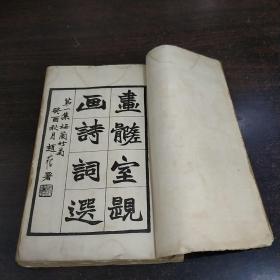 畫髓室題
画詩詞選
第一集梅蘭竹菊
癸酉秋月趙署